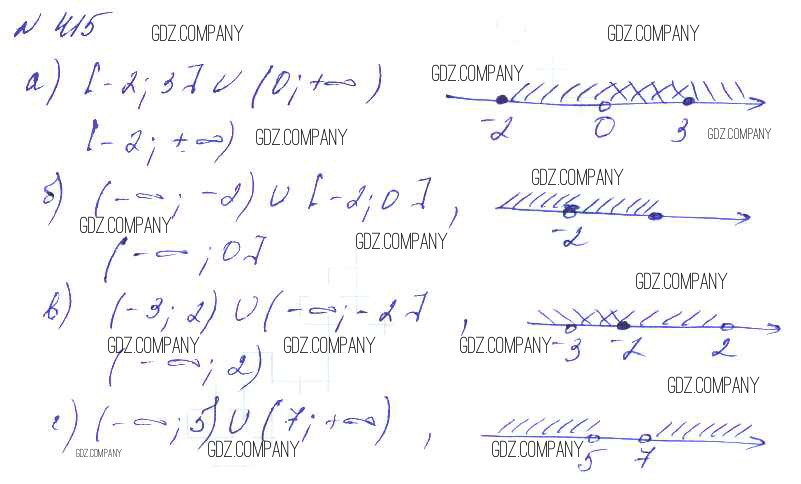 N 415 GDZ.COMPANY GDZ.COMPANY
а) [-2; 3] ∪ (0; +∞) GDZ.COMPANY
-2 0 3 GDZ.COMPANY
[-2; +∞) GDZ.COMPANY
б) (-∞; -2) ∪ [-2; 0], GDZ.COMPANY
GDZ.COMPANY -2
(-∞; 0] GDZ.COMPANY
GDZ.COMPANY
в) (-3; 2) ∪ (-∞; -2],
GDZ.COMPANY GDZ.COMPANY GDZ.COMPANY -3 -2 2
(-∞; 2)
GDZ.COMPANY
г) (-∞; 5) ∪ (7; +∞),
GDZ.COMPANY GDZ.COMPANY GDZ.COMPANY 5 7